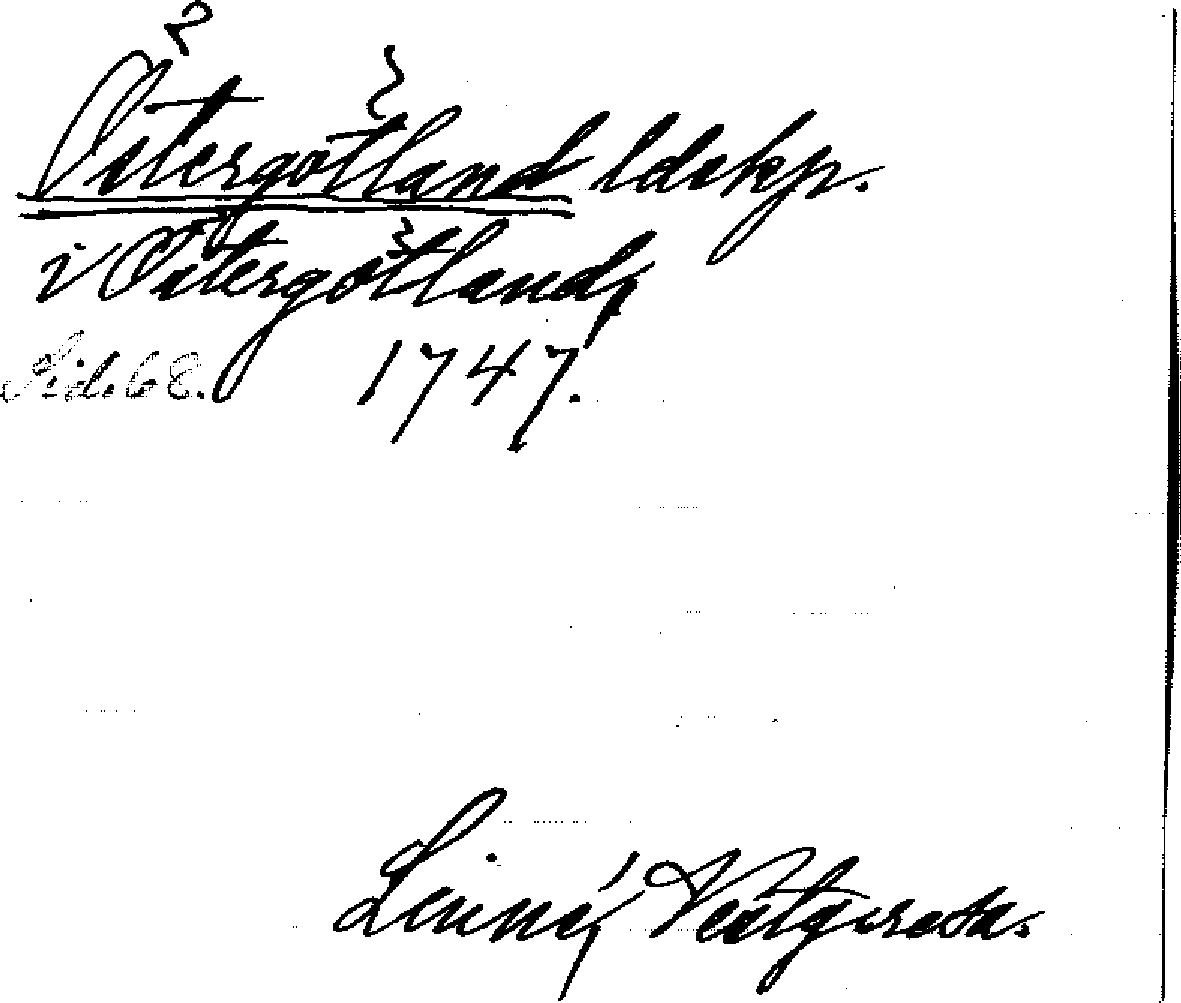 Östergötland ldskp.
i Östergötland,
Sid. 68. 1747.
Linné, Västg. resa.